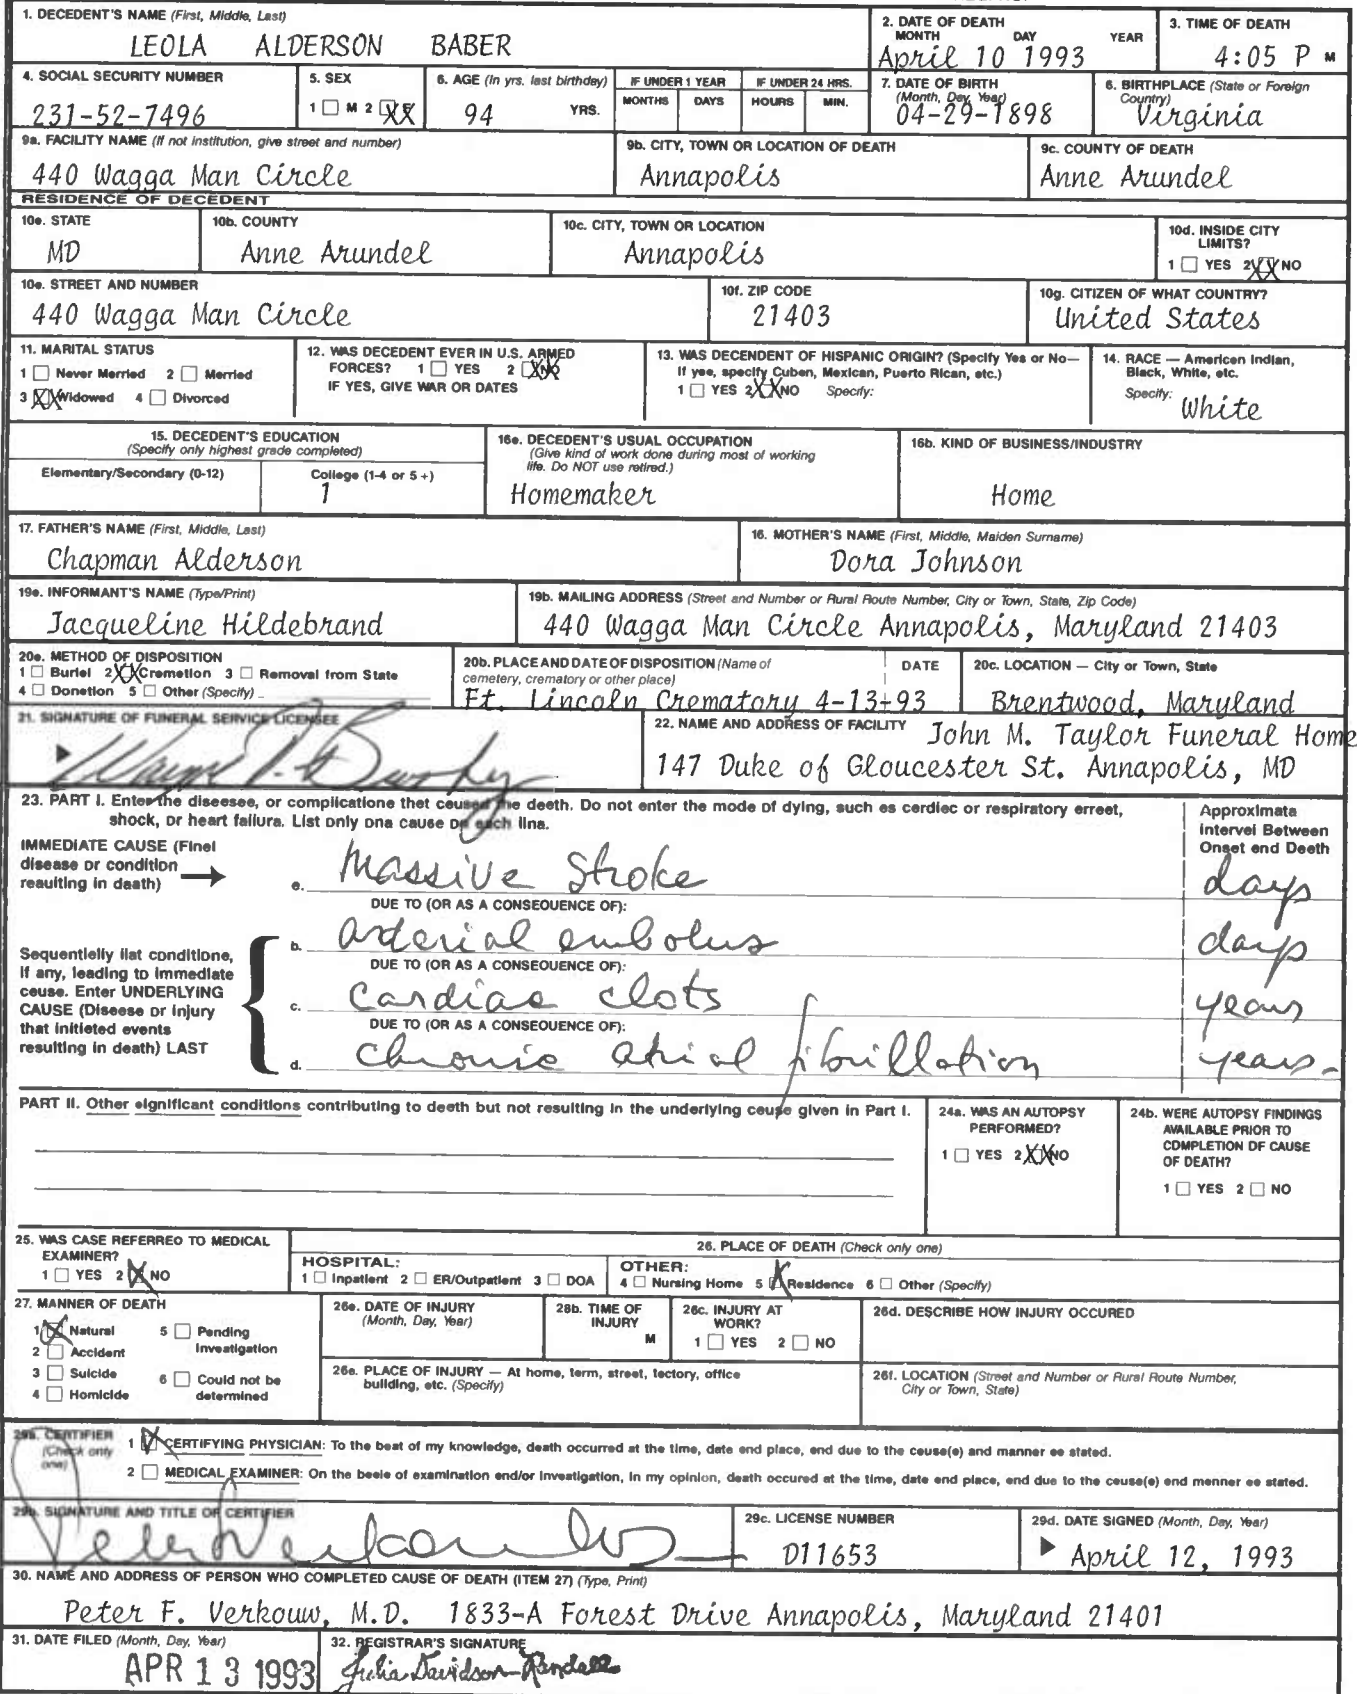 1. DECEDENT'S NAME (First, Middle, Last)
LEOLA ALDERSON BABER
2. DATE OF DEATH
MONTH DAY YEAR
April 10 1993
3. TIME OF DEATH
4:05 P M
4. SOCIAL SECURITY NUMBER
231-52-7496
5. SEX
1 M 2 XX
6. AGE (In yrs. last birthday)
94 YRS.
IF UNDER 1 YEAR
MONTHS DAYS
IF UNDER 24 HRS.
HOURS MIN.
7. DATE OF BIRTH
(Month, Day, Year)
04-29-1898
6. BIRTHPLACE (State or Foreign
Country)
Virginia
9a. FACILITY NAME (If not institution, give street and number)
440 Wagga Man Circle
9b. CITY, TOWN OR LOCATION OF DEATH
Annapolis
9c. COUNTY OF DEATH
Anne Arundel
RESIDENCE OF DECEDENT
10e. STATE
MD
10b. COUNTY
Anne Arundel
10c. CITY, TOWN OR LOCATION
Annapolis
10d. INSIDE CITY
LIMITS?
1 YES 2 XX NO
10e. STREET AND NUMBER
440 Wagga Man Circle
10f. ZIP CODE
21403
10g. CITIZEN OF WHAT COUNTRY?
United States
11. MARITAL STATUS
1 Never Merried 2 Merried
3 XX Widowed 4 Divorced
12. WAS DECEDENT EVER IN U.S. ARMED
FORCES? 1 YES 2 XX NO
IF YES, GIVE WAR OR DATES
13. WAS DECENDENT OF HISPANIC ORIGIN? (Specify Yes or No—
If yee, specify Cuben, Mexican, Puerto Rican, etc.)
1 YES 2 XX NO Specify:
14. RACE — American Indian,
Black, White, etc.
Specify: White
15. DECEDENT'S EDUCATION
(Specify only highest grade completed)
Elementary/Secondary (0-12)
College (1-4 or 5+)
1
16e. DECEDENT'S USUAL OCCUPATION
(Give kind of work done during most of working
life. Do NOT use retired.)
Homemaker
16b. KIND OF BUSINESS/INDUSTRY
Home
17. FATHER'S NAME (First, Middle, Last)
Chapman Alderson
16. MOTHER'S NAME (First, Middle, Maiden Surname)
Dora Johnson
19e. INFORMANT'S NAME (Type/Print)
Jacqueline Hildebrand
19b. MAILING ADDRESS (Street and Number or Rural Route Number, City or Town, State, Zip Code)
440 Wagga Man Circle Annapolis, Maryland 21403
20e. METHOD OF DISPOSITION
1 Buriel 2 XX Cremetion 3 Removal from State
4 Donetion 5 Other (Specify)
20b. PLACE AND DATE OF DISPOSITION (Name of
cemetery, crematory or other place)
DATE
Ft. Lincoln Crematory 4-13-93
20c. LOCATION — City or Town, State
Brentwood, Maryland
21. SIGNATURE OF FUNERAL SERVICE LICENSEE
22. NAME AND ADDRESS OF FACILITY John M. Taylor Funeral Home
147 Duke of Gloucester St. Annapolis, MD
23. PART I. Enter the diseesee, or complicatione thet ceused the deeth. Do not enter the mode of dying, such es cerdiec or respiratory erreet,
shock, or heart fallura. List only ona cause on each lina.
Approximata
Intervel Between
Onset end Deeth
IMMEDIATE CAUSE (Finel
disease or condition
reaulting in daath)
e. Massive Stroke
days
DUE TO (OR AS A CONSEOUENCE OF):
Sequentielly liat conditione,
if any, leading to Immediate
ceuse. Enter UNDERLYING
CAUSE (Diseese or injury
that initieted events
resulting in death) LAST
b. arterial embolus
days
DUE TO (OR AS A CONSEOUENCE OF):
c. cardiac clots
years
DUE TO (OR AS A CONSEOUENCE OF):
d. chronic atrial fibrillation
years
PART II. Other eignificant conditions contributing to deeth but not resulting in the underlying ceuse given in Part I.
24a. WAS AN AUTOPSY
PERFORMED?
1 YES 2 XX NO
24b. WERE AUTOPSY FINDINGS
AVAILABLE PRIOR TO
COMPLETION OF CAUSE
OF DEATH?
1 YES 2 NO
25. WAS CASE REFERREO TO MEDICAL
EXAMINER?
1 YES 2 X NO
26. PLACE OF DEATH (Check only one)
HOSPITAL:
1 Inpatient 2 ER/Outpatient 3 DOA
OTHER:
4 Nursing Home 5 X Residence 6 Other (Specify)
27. MANNER OF DEATH
1 X Natural 5 Pending
Inveatigation
2 Accident
3 Suicide 6 Could not be
determined
4 Homicide
26e. DATE OF INJURY
(Month, Day, Year)
28b. TIME OF
INJURY
M
26c. INJURY AT
WORK?
1 YES 2 NO
26d. DESCRIBE HOW INJURY OCCURED
26e. PLACE OF INJURY — At home, term, street, tectory, office
building, etc. (Specify)
26f. LOCATION (Street and Number or Rural Route Number,
City or Town, State)
29a. CERTIFIER
(Check only
one)
1 X CERTIFYING PHYSICIAN: To the beat of my knowledge, death occurred at the time, date end place, end due to the ceuse(e) and manner ee stated.
2 MEDICAL EXAMINER: On the beele of examination end/or Inveatigation, in my opinion, death occured at the time, date end place, end due to the ceuse(e) end menner ee stated.
29b. SIGNATURE AND TITLE OF CERTIFIER
29c. LICENSE NUMBER
D11653
29d. DATE SIGNED (Month, Day, Year)
April 12, 1993
30. NAME AND ADDRESS OF PERSON WHO COMPLETED CAUSE OF DEATH (ITEM 27) (Type, Print)
Peter F. Verkouw, M.D. 1833-A Forest Drive Annapolis, Maryland 21401
31. DATE FILED (Month, Day, Year)
APR 13 1993
32. REGISTRAR'S SIGNATURE
Julia Davidson-Randall